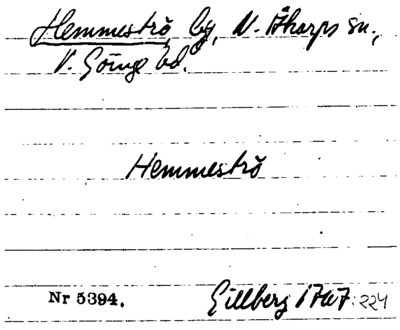 Hemmeströ, by, N. Åkarps sn.,
V. Göinge hd.
Hemmeströ
Nr 5394. Gillberg 1767: 224